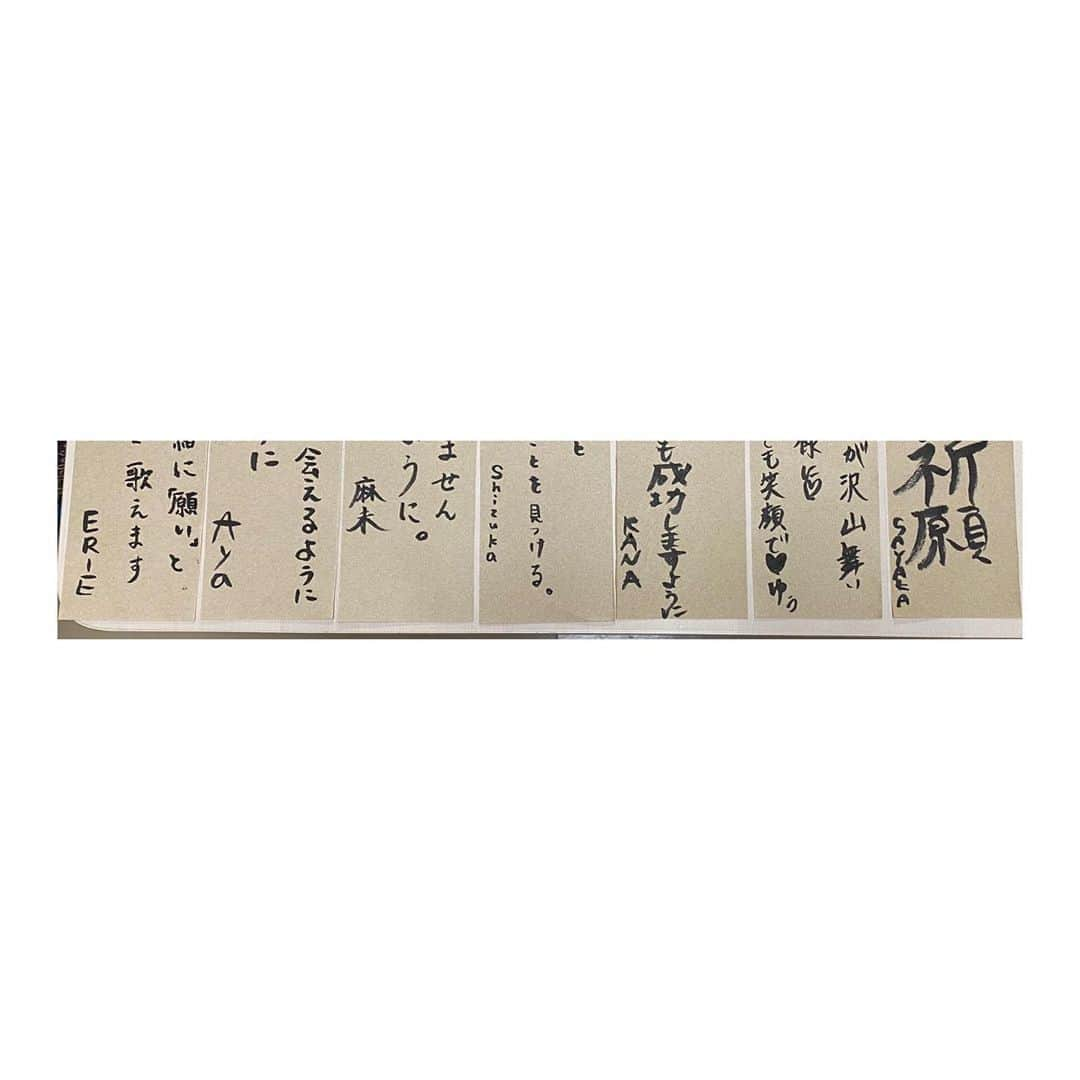 祈願
SAYAKA
が沢山舞い
も笑顔で♥ゆう
も成功しますように
KANA
と
ことを見つける。
Shizuka
ません
うに。
麻未
会えるように
に
Aya
緒に「願い」と
歌えます
ERIE